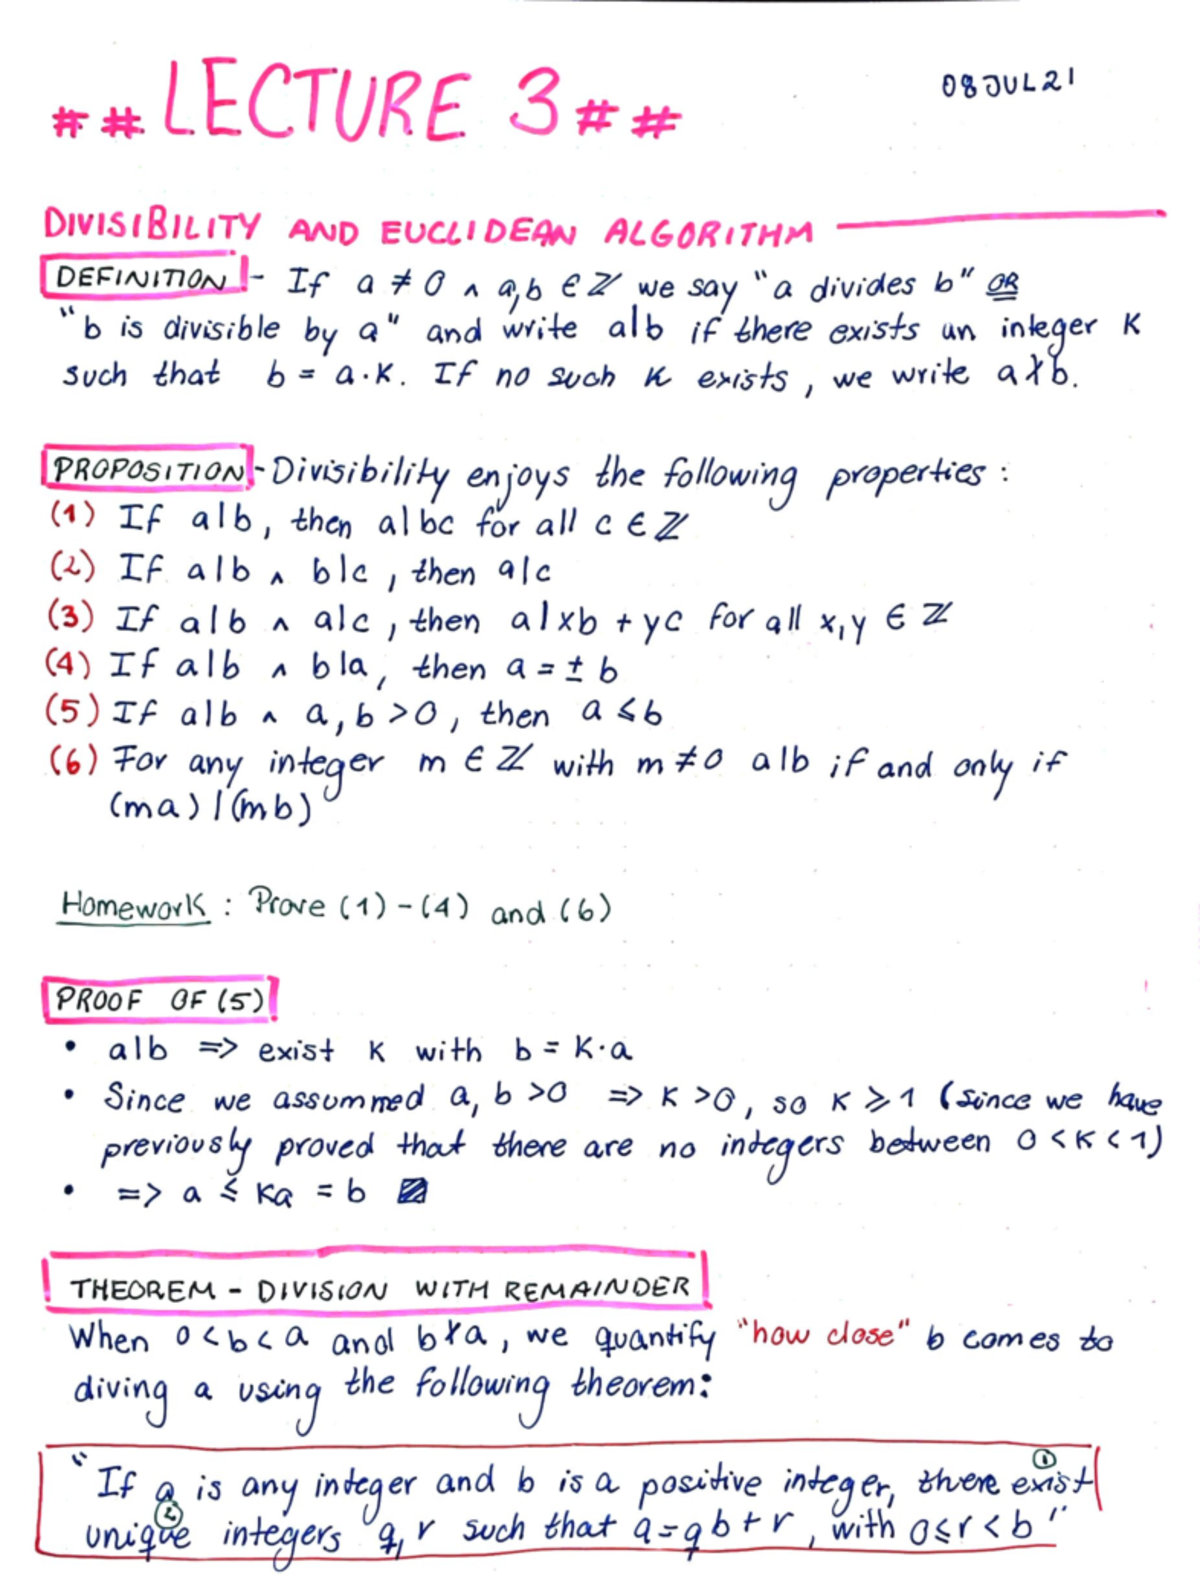 ## LECTURE 3 ##
08JUL21
DIVISIBILITY AND EUCLIDEAN ALGORITHM
DEFINITION - If a ≠ 0 ∧ a,b ∈ ℤ we say "a divides b" OR
"b is divisible by a" and write a|b if there exists an integer K
such that b = a·K. If no such K exists, we write a∤b.
PROPOSITION - Divisibility enjoys the following properties:
(1) If a|b, then a|bc for all c ∈ ℤ
(2) If a|b ∧ b|c, then a|c
(3) If a|b ∧ a|c, then a|xb + yc for all x,y ∈ ℤ
(4) If a|b ∧ b|a, then a = ± b
(5) If a|b ∧ a, b > 0, then a ≤ b
(6) For any integer m ∈ ℤ with m ≠ 0 a|b if and only if
(ma)|(mb)
Homework: Prove (1)-(4) and (6)
PROOF OF (5)
• a|b => exist K with b = K·a
• Since we assummed a, b >0 => K >0, so K ≥ 1 (since we have
previously proved that there are no integers between 0 < K < 1)
• => a ≤ Ka = b
THEOREM - DIVISION WITH REMAINDER
When 0 < b < a and b∤a, we quantify "how close" b comes to
diving a using the following theorem:
"If a is any integer and b is a positive integer, there ① exist
② unique integers q, r such that a=qb+r, with 0≤r<b"